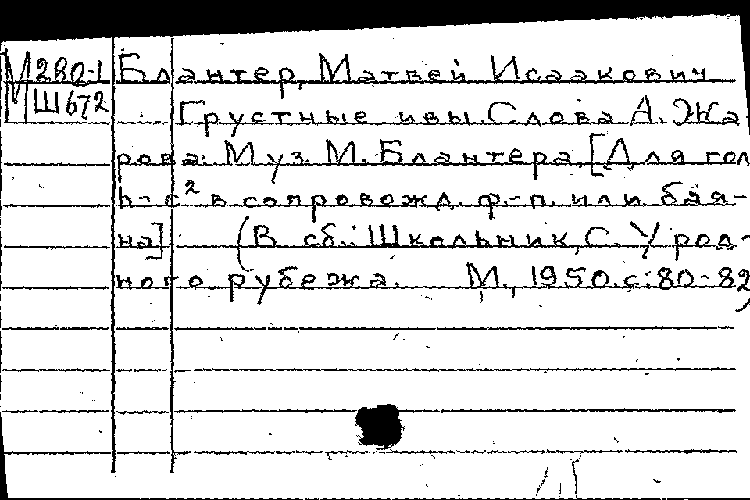 М280-1 Блантер, Матвей Исаакович
МШ672
Грустные ивы. Слова А. Жа
рова. Муз. М. Блантера. [Для гол
h-c² в сопровожд. ф.-п. или бая-
на] (В сб.: Школьник, С. У род-
ного рубежа. М., 1950. с. 80-82)